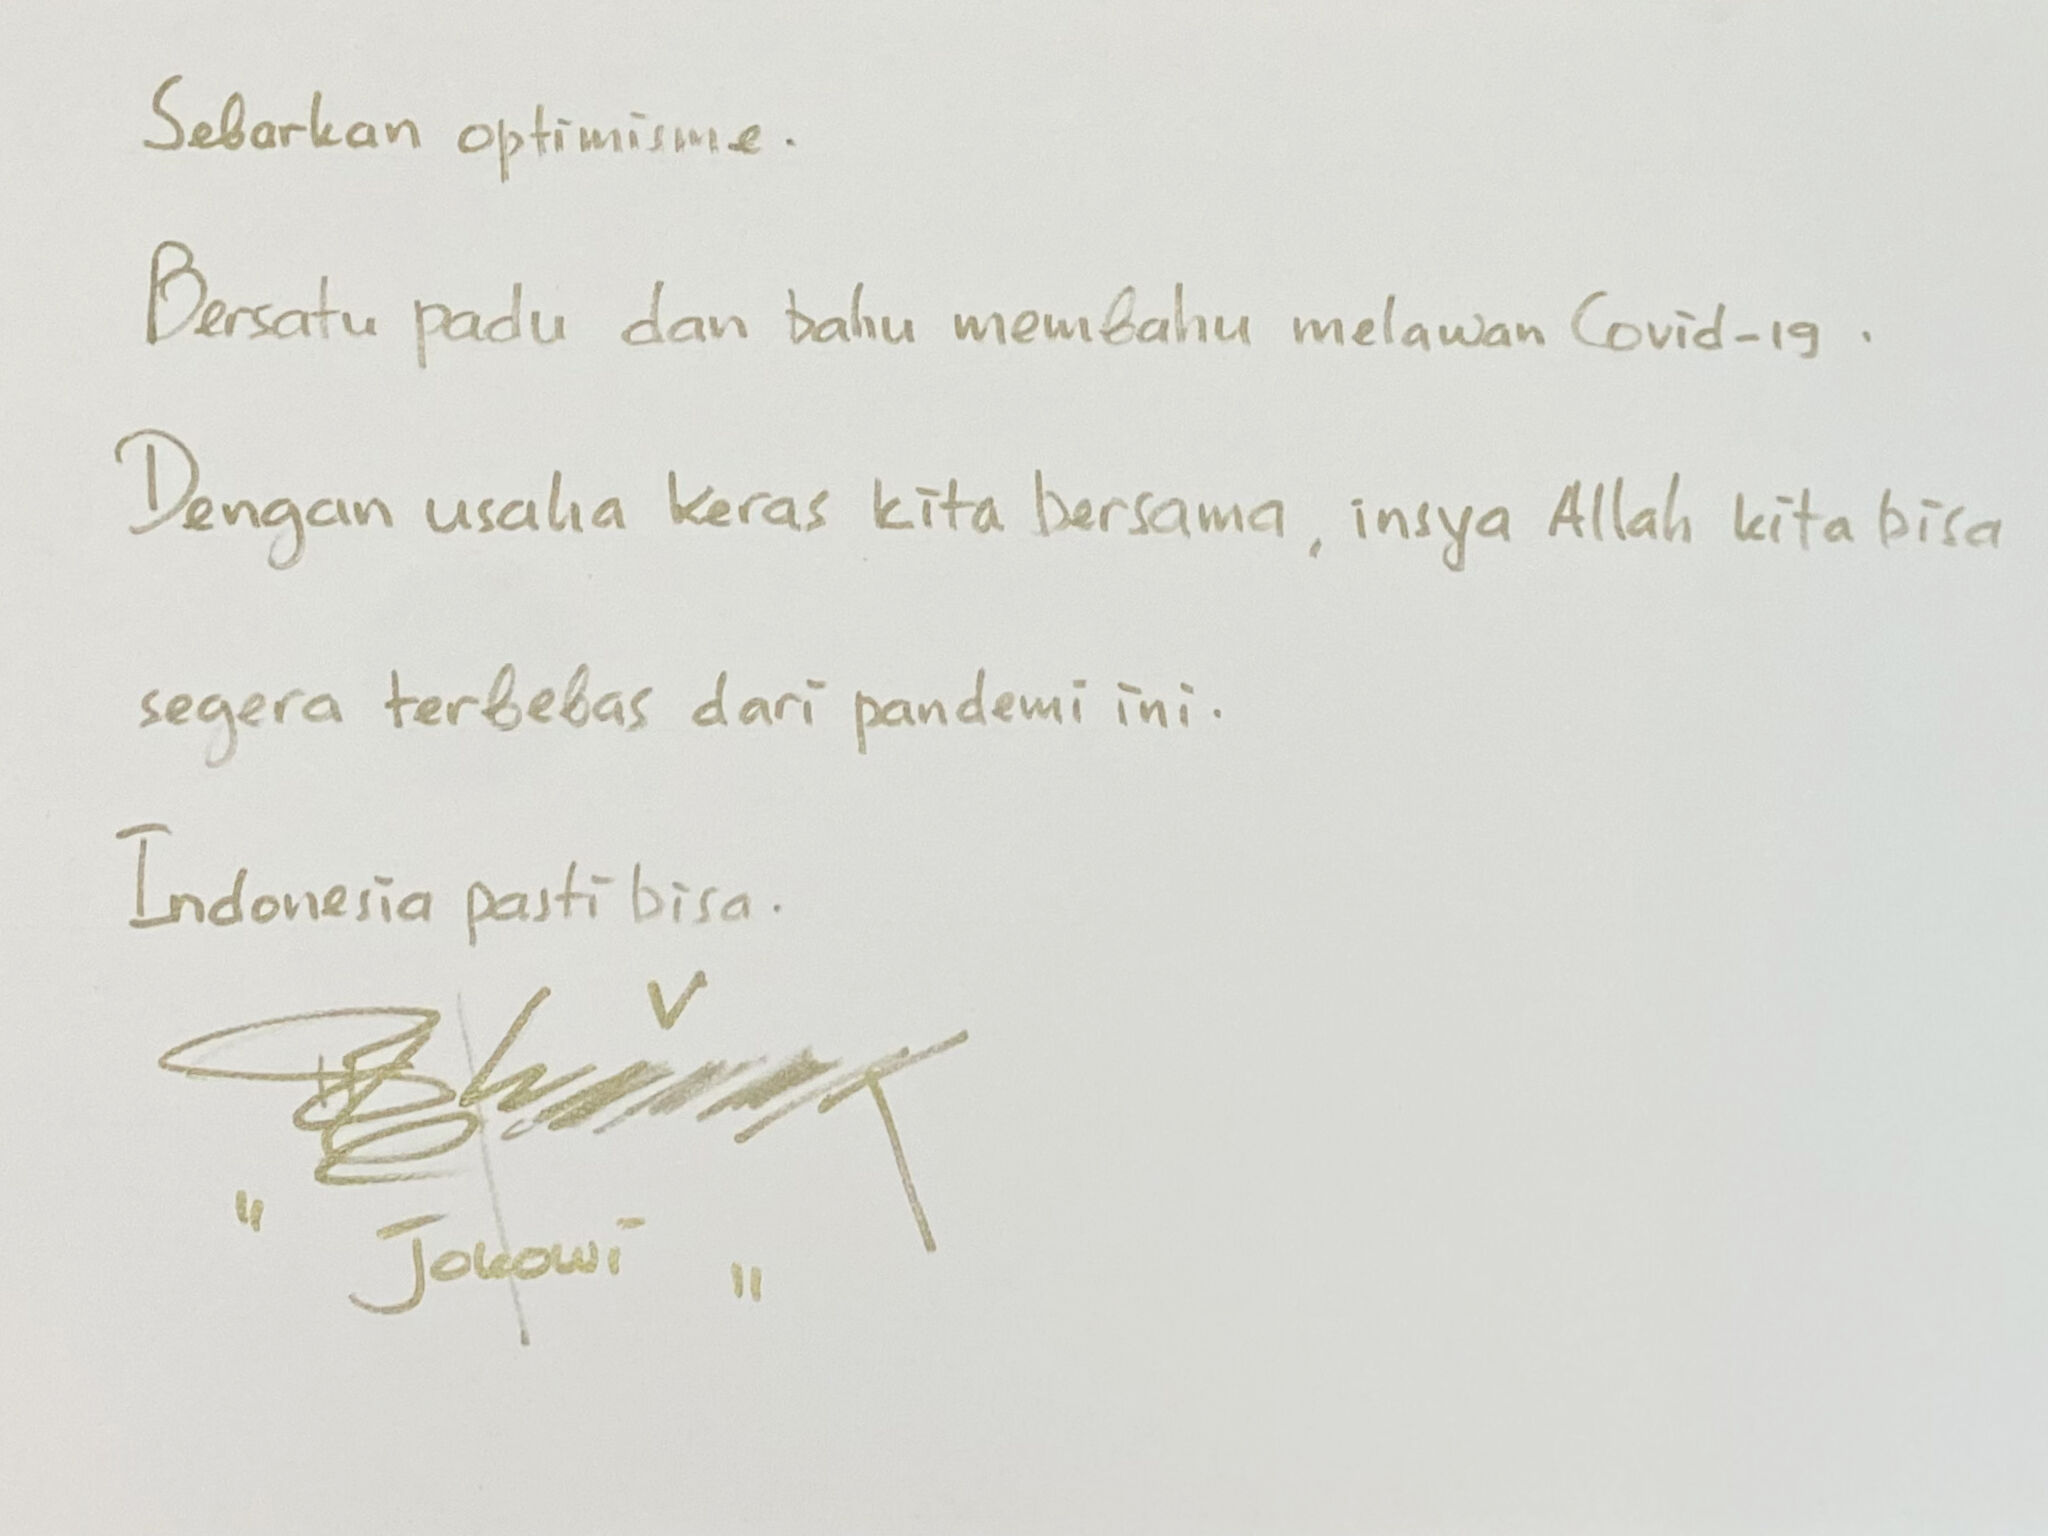 Sebarkan optimisme.
Bersatu padu dan bahu membahu melawan Covid-19.
Dengan usaha keras kita bersama, insya Allah kita bisa
segera terbebas dari pandemi ini.
Indonesia pasti bisa.
" Jokowi "